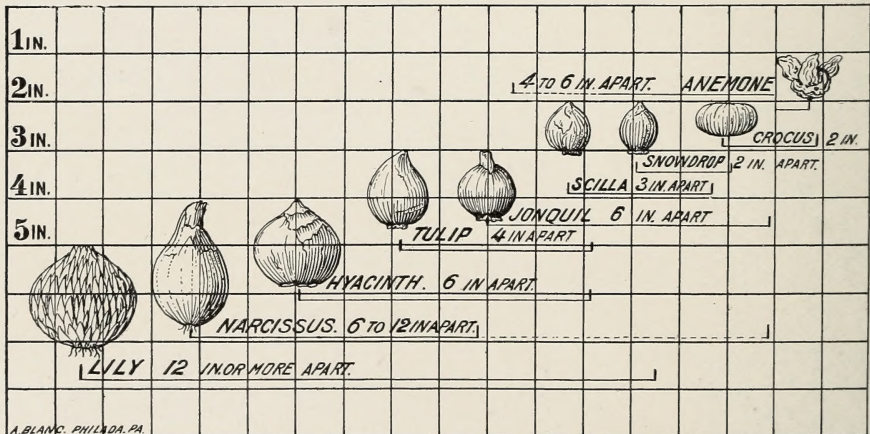 1IN.
2IN.
4 TO 6 IN. APART. ANEMONE
3IN.
CROCUS 2 IN.
SNOWDROP 2 IN. APART.
4IN.
SCILLA 3 IN. APART
5IN.
JONQUIL 6 IN. APART
TULIP 4 IN APART
HYACINTH. 6 IN APART.
NARCISSUS. 6 TO 12 IN APART.
LILY 12 IN. OR MORE APART.
A.BLANC. PHILADA. PA.